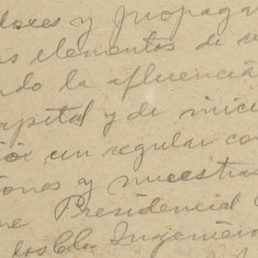 dores y propaga
os elementos de
ndo la afluencia
apital y de inici
ió un regular con
iones y nuestras
ne Presidencial
Ingeniero